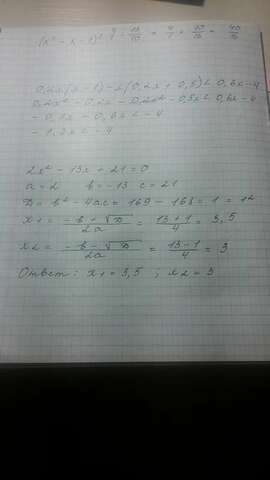 0,2x(x-1)-x(0,2x+0,5)<0,6x-4
0,2x²-0,2x-0,2x²-0,5x<0,6x-4
-0,7x-0,6x<-4
-1,3x<-4
2x²-13x+21=0
a=2 b=-13 c=21
D=b²-4ac=169-168=1=1²
x1=\frac{-b+√D}{2a}=\frac{13+1}{4}=3,5
x2=\frac{-b-√D}{2a}=\frac{13-1}{4}=3
Ответ: x1=3,5; x2=3